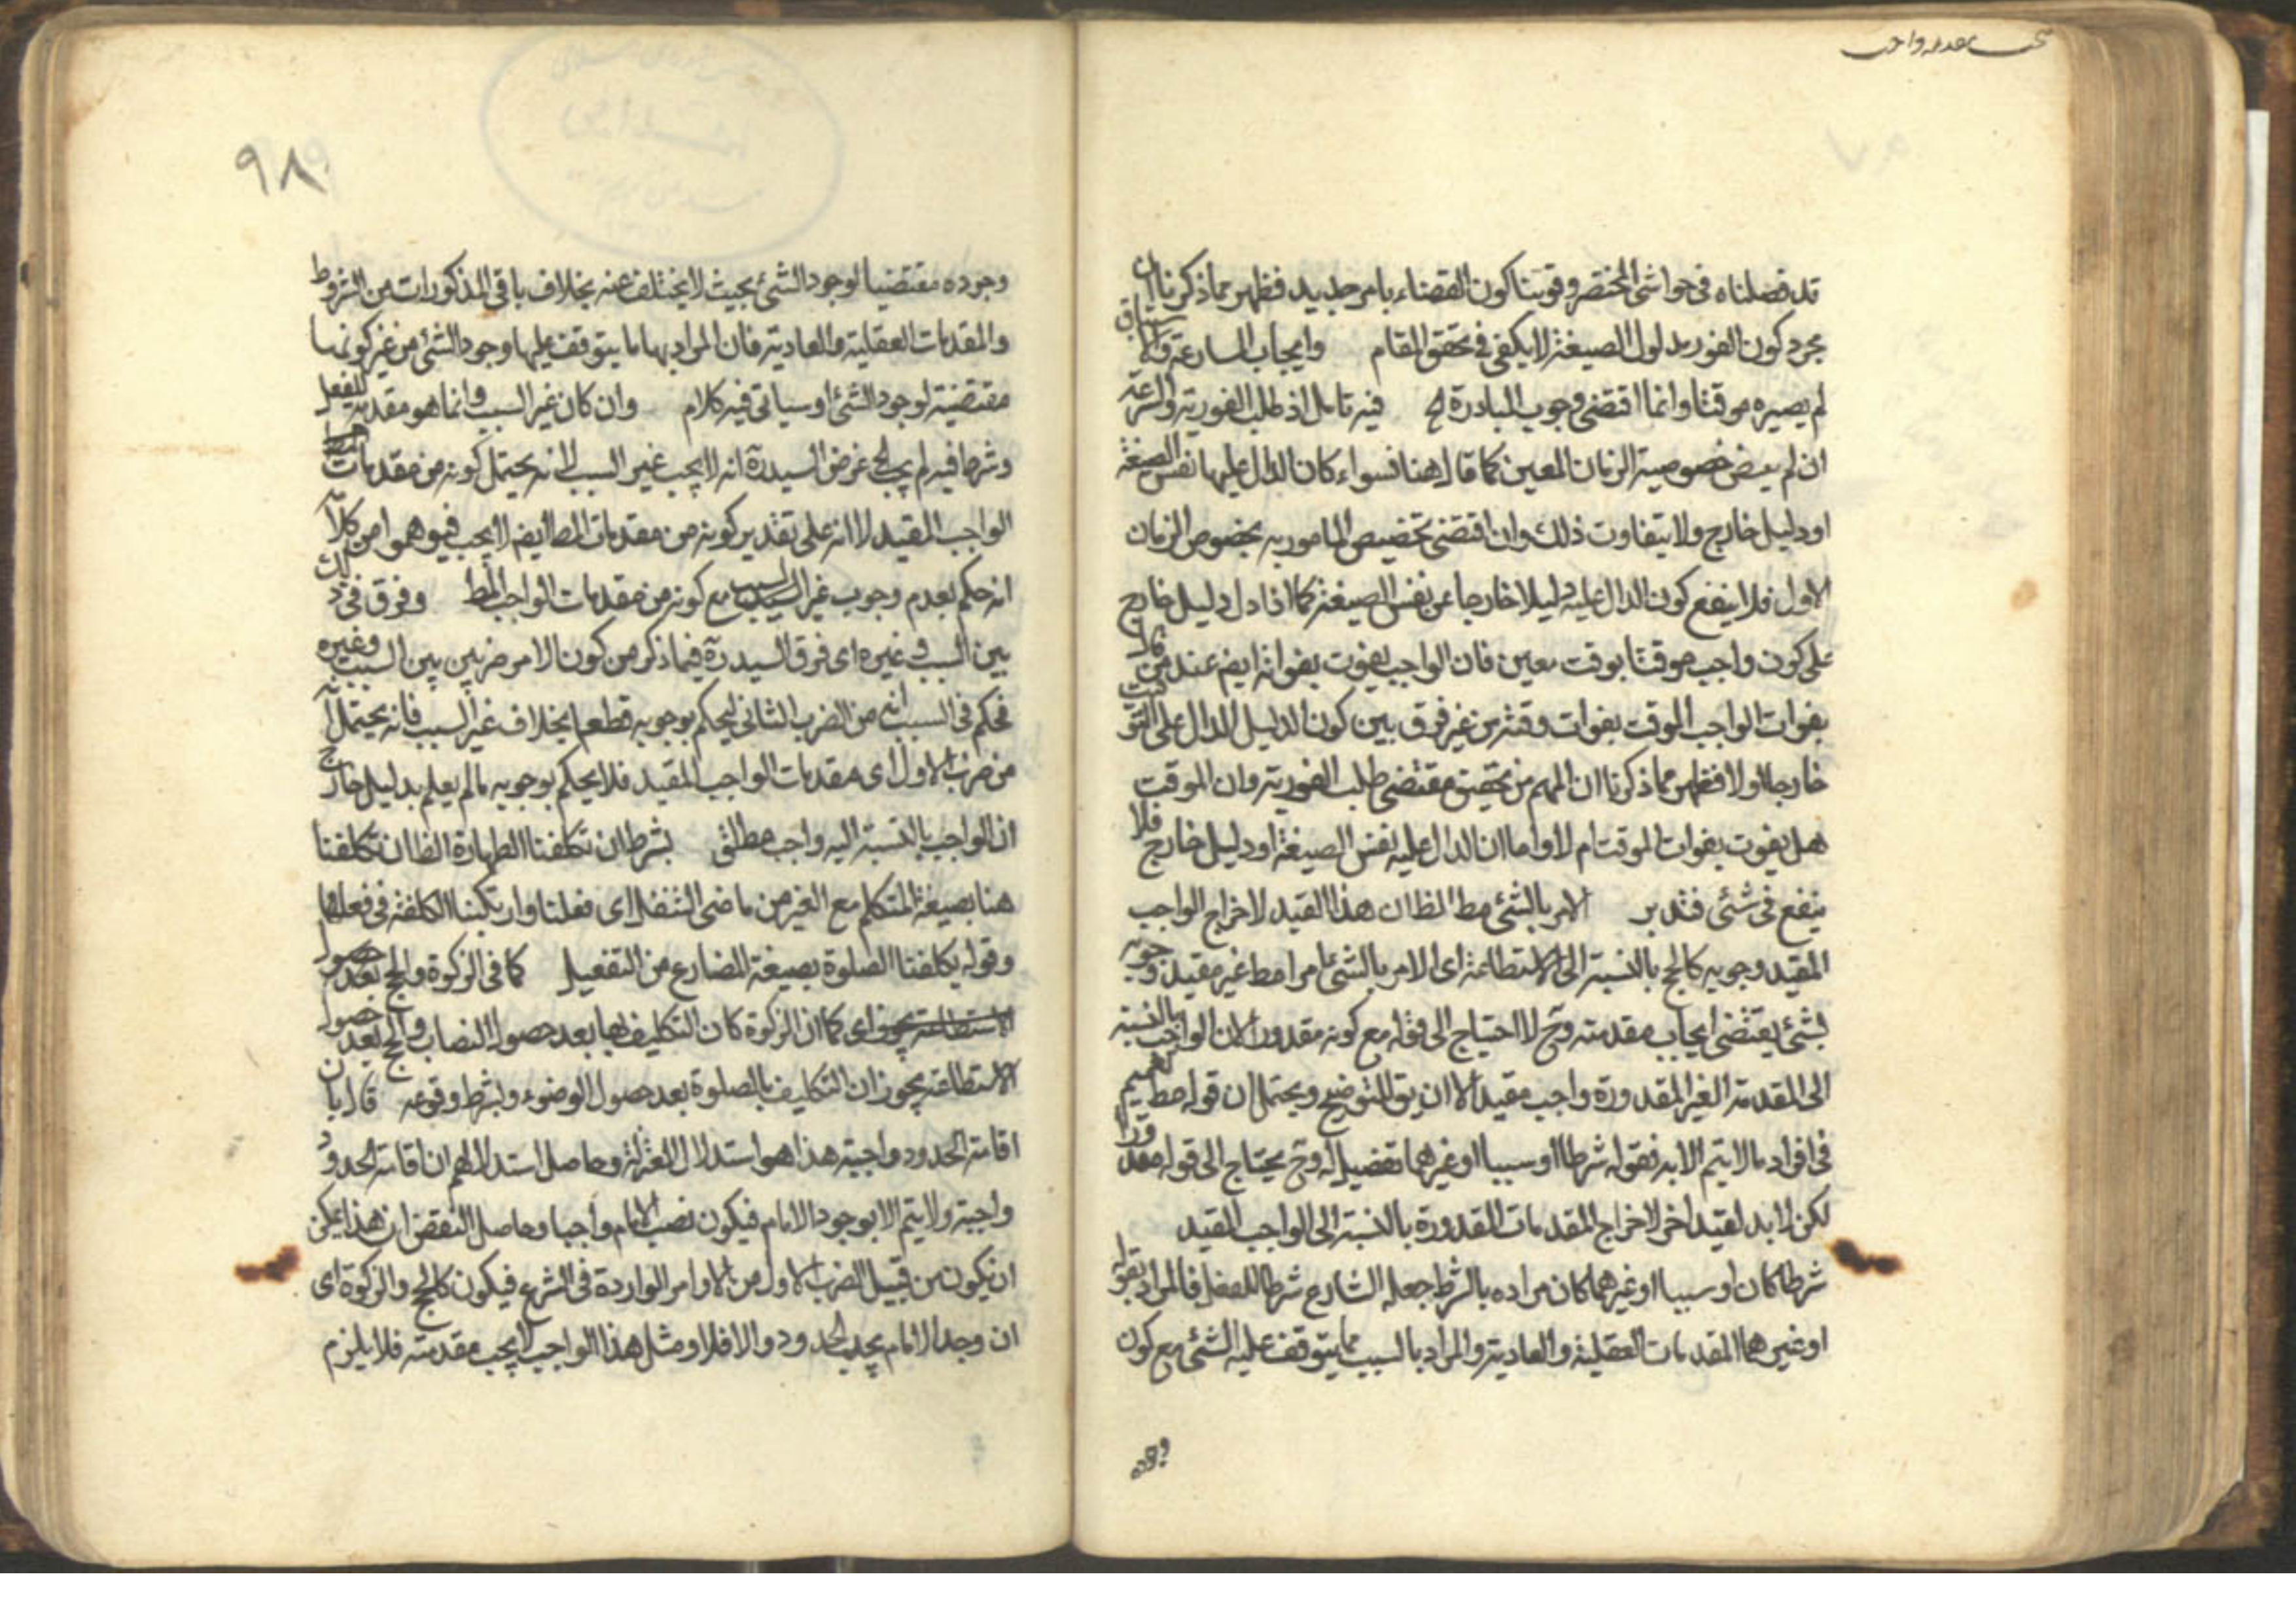 قد فصلناه فى حواشى المختصر وقوينا كون القضاء بامر جديد فظهر مما ذكرنا ان
مجرد كون الفور مدلول الصيغة لا يكفى فى تحقق المقام وايجاب المسارعة
لم يصيره موقتا وانما اقتضى وجوب المبادرة فيه تامل اذ طلب الفورية والسرعة
ان لم يقتض خصوصية الزمان المعين كما قال هنا فسواء كان الدال عليها نفس الصيغة
او دليل خارج ولا يتفاوت ذلك وان اقتضى تخصيص المامور به بخصوص الزمان
الاول فلا ينفع كون الدال عليه دليلا خارجا عن نفس الصيغة كما اذا دل دليل خارج
على كون واجب موقتا بوقت معين فان الواجب يفوت بفواته ايض عند من قال
بفوات الواجب الموقت بفوات وقته من غير فرق بين كون الدليل الدال على التوقيت
خارجا اولا فظهر مما ذكرنا ان المهم من تحقيق مقتضى طلب الفورية وان الموقت
هل يفوت بفوات الوقت ام لا واما ان الدال عليه نفس الصيغة او دليل خارج فلا
ينفع فى شئ فتدبر الامر بالشئ مط الظ ان هذا القيد لاخراج الواجب
المقيد وجوبه كالحج بالنسبة الى الاستطاعة اى الامر بالشئ امرا مط غير مقيد وجوبه
بشئ يقتضى ايجاب مقدمته وح لا احتياج الى قوله مع كونه مقدورا لان الواجب بالنسبة
الى المقدمة الغير المقدورة واجب مقيد الا ان يق للتوضيح ويحتمل ان قوله مط تعميم
فى افراد ما لا يتم الا به فقوله شرطا او سببا او غيرهما تفصيل له وح يحتاج الى قوله مقدورا
لكن لا بد لقيد اخر لاخراج المقدمات المقدورة بالنسبة الى الواجب المقيد
شرطا كان او سببا او غيرهما كان مراده بالشرط جعله الشارع شرطا للفعل فالمراد بقوله
او غيرهما المقدمات العقلية والعادية والمراد بالسبب ما يتوقف عليه الشئ مع كون
وجوده
٩٨
وجوده مقتضيا لوجود الشئ بحيث لا يختلف عنه بخلاف باقى المذكورات من الشروط
والمقدمات العقلية والعادية فان المراد بها ما يتوقف عليها وجود الشئ من غير كونها
مقتضية لوجود الشئ او سياتى فيه كلام وان كان غير السبب وانما هو مقدمة للفعل
وشرط فيه لم يجب غرض السيد ره انه لا يجب غير السبب لانه يحتمل كونه من مقدمات
الواجب المقيد لا انه على تقدير كونه من مقدمات المط ايض لا يجب فيوهموا من كلامه
انه حكم بعدم وجوب غير السبب مع كونه من مقدمات الواجب المط وفرق فى ذلك
بين السبب وغيره اى فرق السيد ره فيما ذكر من كون الامر ضربين بين السبب وغيره
فحكم فى السبب انه من الضرب الثانى ليحكم بوجوبه قطعا بخلاف غير السبب فانه يحتمل انه
من ضرب الاول اى مقدمات الواجب المقيد فلا يحكم بوجوبه ما لم يعلم بدليل خارج
ان الواجب بالنسبة اليه واجب مطلق بشرط ان تكلفنا الطهارة الظ ان تكلفنا
هنا بصيغة المتكلم مع الغير من ماضى التفعل اى فعلنا وارتكبنا الكلفة فى فعلها
وقوله يكلفنا الصلوة بصيغة المضارع من التفعيل كما فى الزكوة والحج بعد حصول
اى كما ان الزكوة كان التكليف بها بعد حصول النصاب والحج بعد حصول
الاستطاعة يجوز ان التكليف بالصلوة بعد حصول الوضوء وبشرط وقوعه قال بان
اقامة الحدود واجبة هذا هو استدلال المعتزلة وحاصل استدلالهم ان اقامة الحدود
واجبة ولا يتم الا بوجود الامام فيكون نصب الامام واجبا وحاصل النقض ان هذا يمكن
ان يكون من قبيل الضرب الاول من الاوامر الواردة فى الشرع فيكون كالحج والزكوة اى
ان وجد الامام يجب الحدود والا فلا ومثل هذا الواجب لا يجب مقدمته فلا يلزم